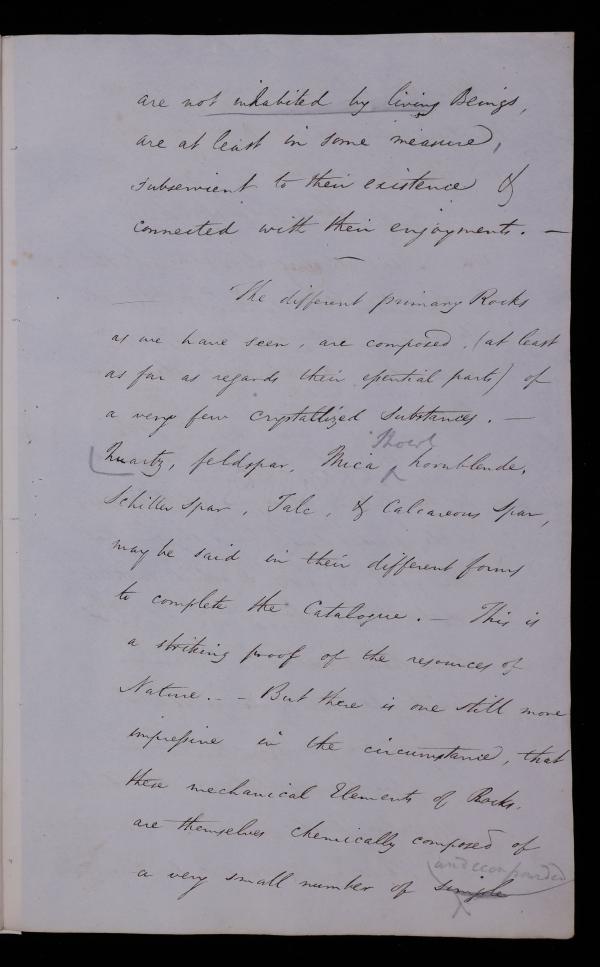 are not inhabited by living Beings,
are at least in some measure,
subservient to their existence &
connected with their enjoyments. —
—
The different primary Rocks
as we have seen, are composed, (at least
as far as regards their essential parts) of
a very few crystallized substances. —
Shorl
Quartz, feldspar, Mica ^ hornblende,
Schiller Spar, Talc, & Calcareous Spar,
may be said in their different forms
to complete the Catalogue. — This is
a striking proof of the resources of
Nature. — But there is one still more
impressive in the circumstance, that
these mechanical Elements of Rocks,
are themselves chemically composed of
undecompounded
a very small number of simple ^